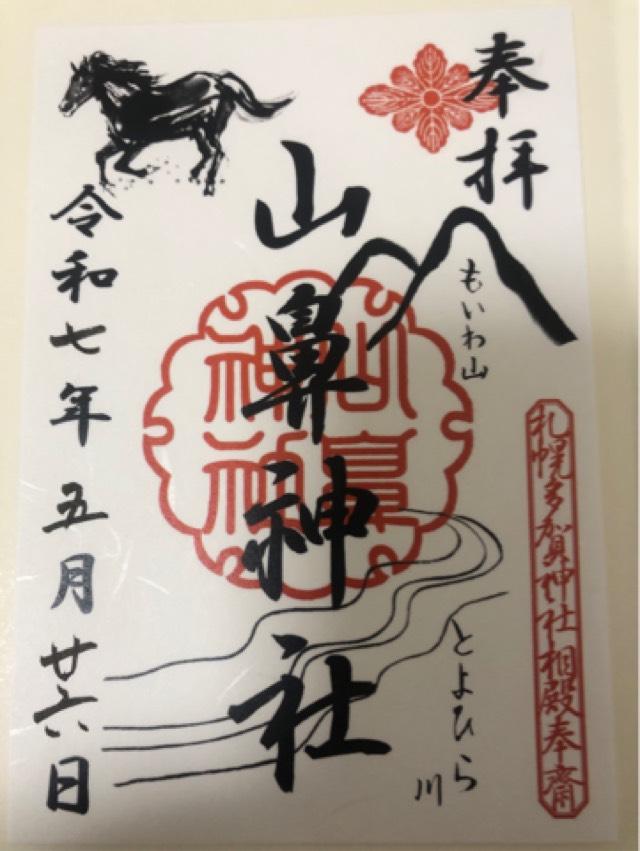 奉拝
もいわ山
札幌多賀神社相殿奉斎
とよひら川
山鼻神社
山鼻神社
令和七年五月廿六日